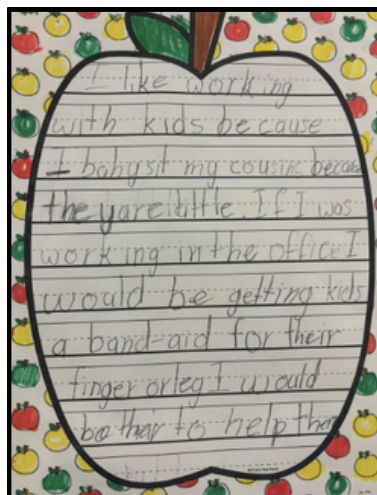 I like working
with kids because
I babysit my cousins because
they are little. If I was
working in the office I
would be getting kids
a band-aid for their
finger or leg I would
be their to help them